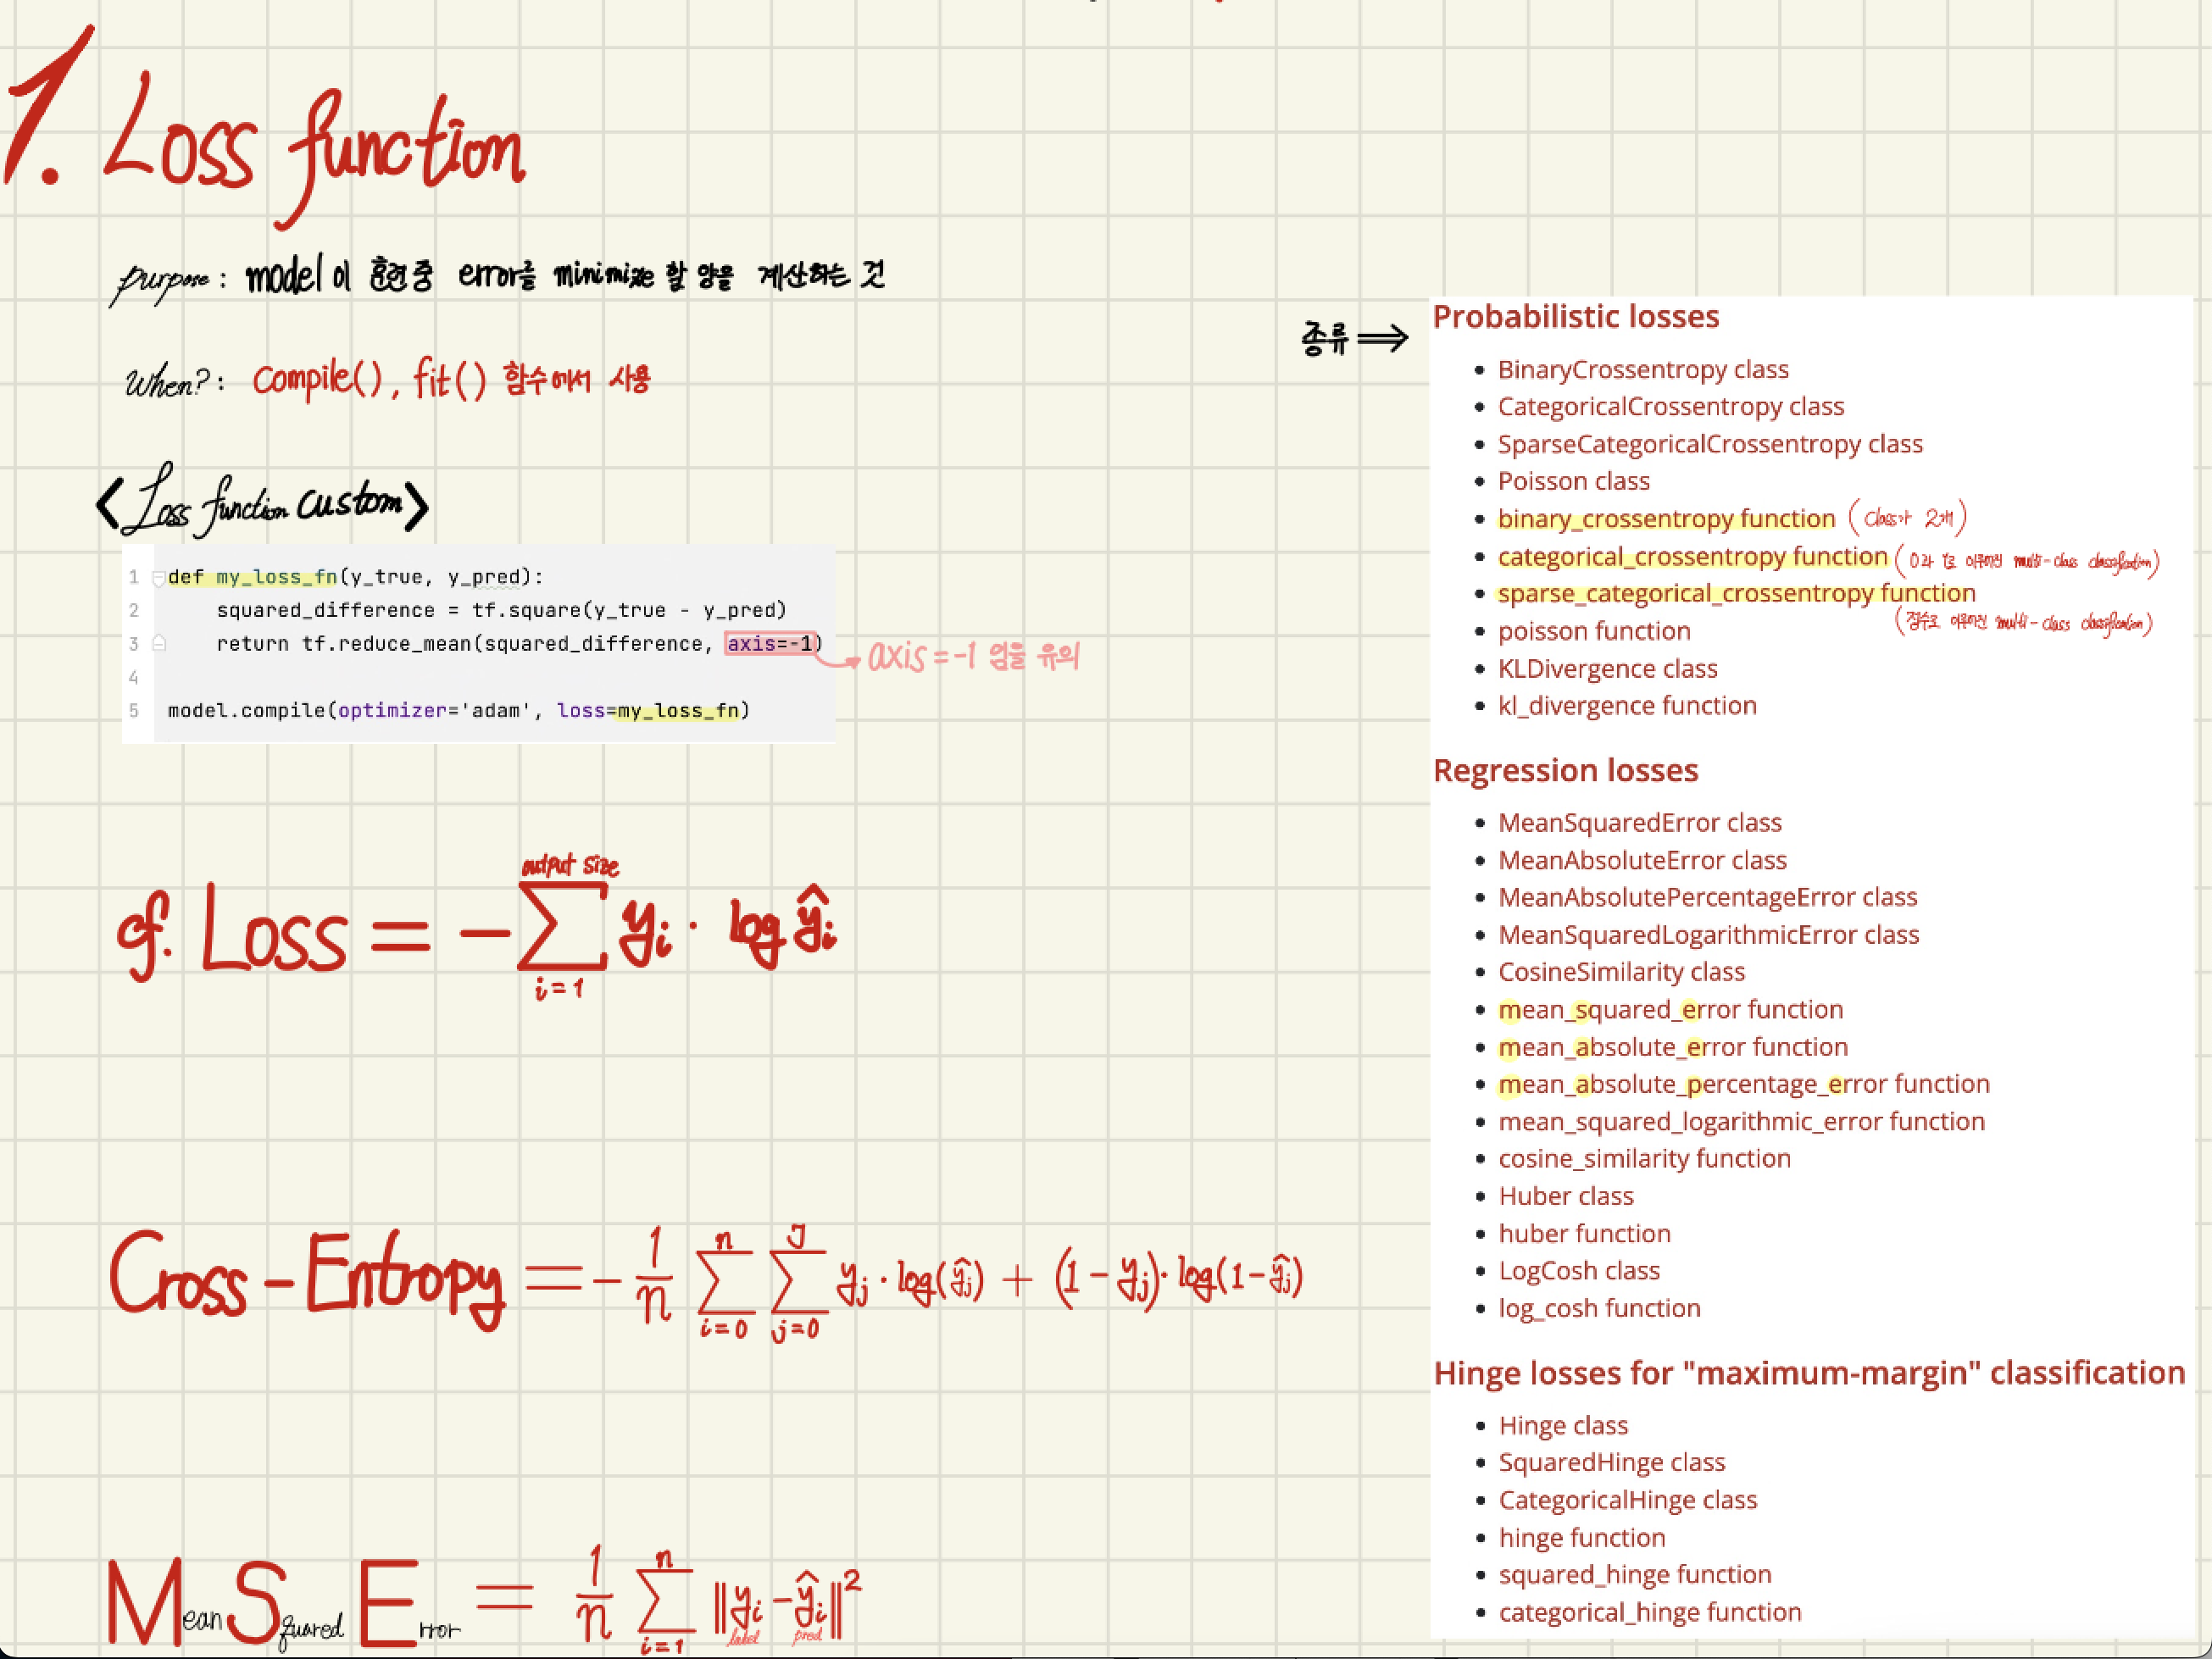 1. Loss function
purpose : model이 훈련중 error를 minimize 할 양을 계산하는 것
When? : compile(), fit() 함수에서 사용
<Loss function custom>
1 def my_loss_fn(y_true, y_pred):
2 squared_difference = tf.square(y_true - y_pred)
3 return tf.reduce_mean(squared_difference, axis=-1)
axis=-1 임을 유의
4
5 model.compile(optimizer='adam', loss=my_loss_fn)
cf. Loss = - output size ∑ i=1 yi · log ŷi
Cross-Entropy = - 1/n n ∑ i=0 J ∑ j=0 yj · log(ŷj) + (1-yj) · log(1-ŷj)
Mean Squared Error = 1/n n ∑ i=1 ||yi - ŷi||²
label pred
종류 ⇒
Probabilistic losses
• BinaryCrossentropy class
• CategoricalCrossentropy class
• SparseCategoricalCrossentropy class
• Poisson class
• binary_crossentropy function (class가 2개)
• categorical_crossentropy function (0과 1로 이루어진 multi-class classification)
• sparse_categorical_crossentropy function
(정수로 이루어진 multi-class classification)
• poisson function
• KLDivergence class
• kl_divergence function
Regression losses
• MeanSquaredError class
• MeanAbsoluteError class
• MeanAbsolutePercentageError class
• MeanSquaredLogarithmicError class
• CosineSimilarity class
• mean_squared_error function
• mean_absolute_error function
• mean_absolute_percentage_error function
• mean_squared_logarithmic_error function
• cosine_similarity function
• Huber class
• huber function
• LogCosh class
• log_cosh function
Hinge losses for "maximum-margin" classification
• Hinge class
• SquaredHinge class
• CategoricalHinge class
• hinge function
• squared_hinge function
• categorical_hinge function